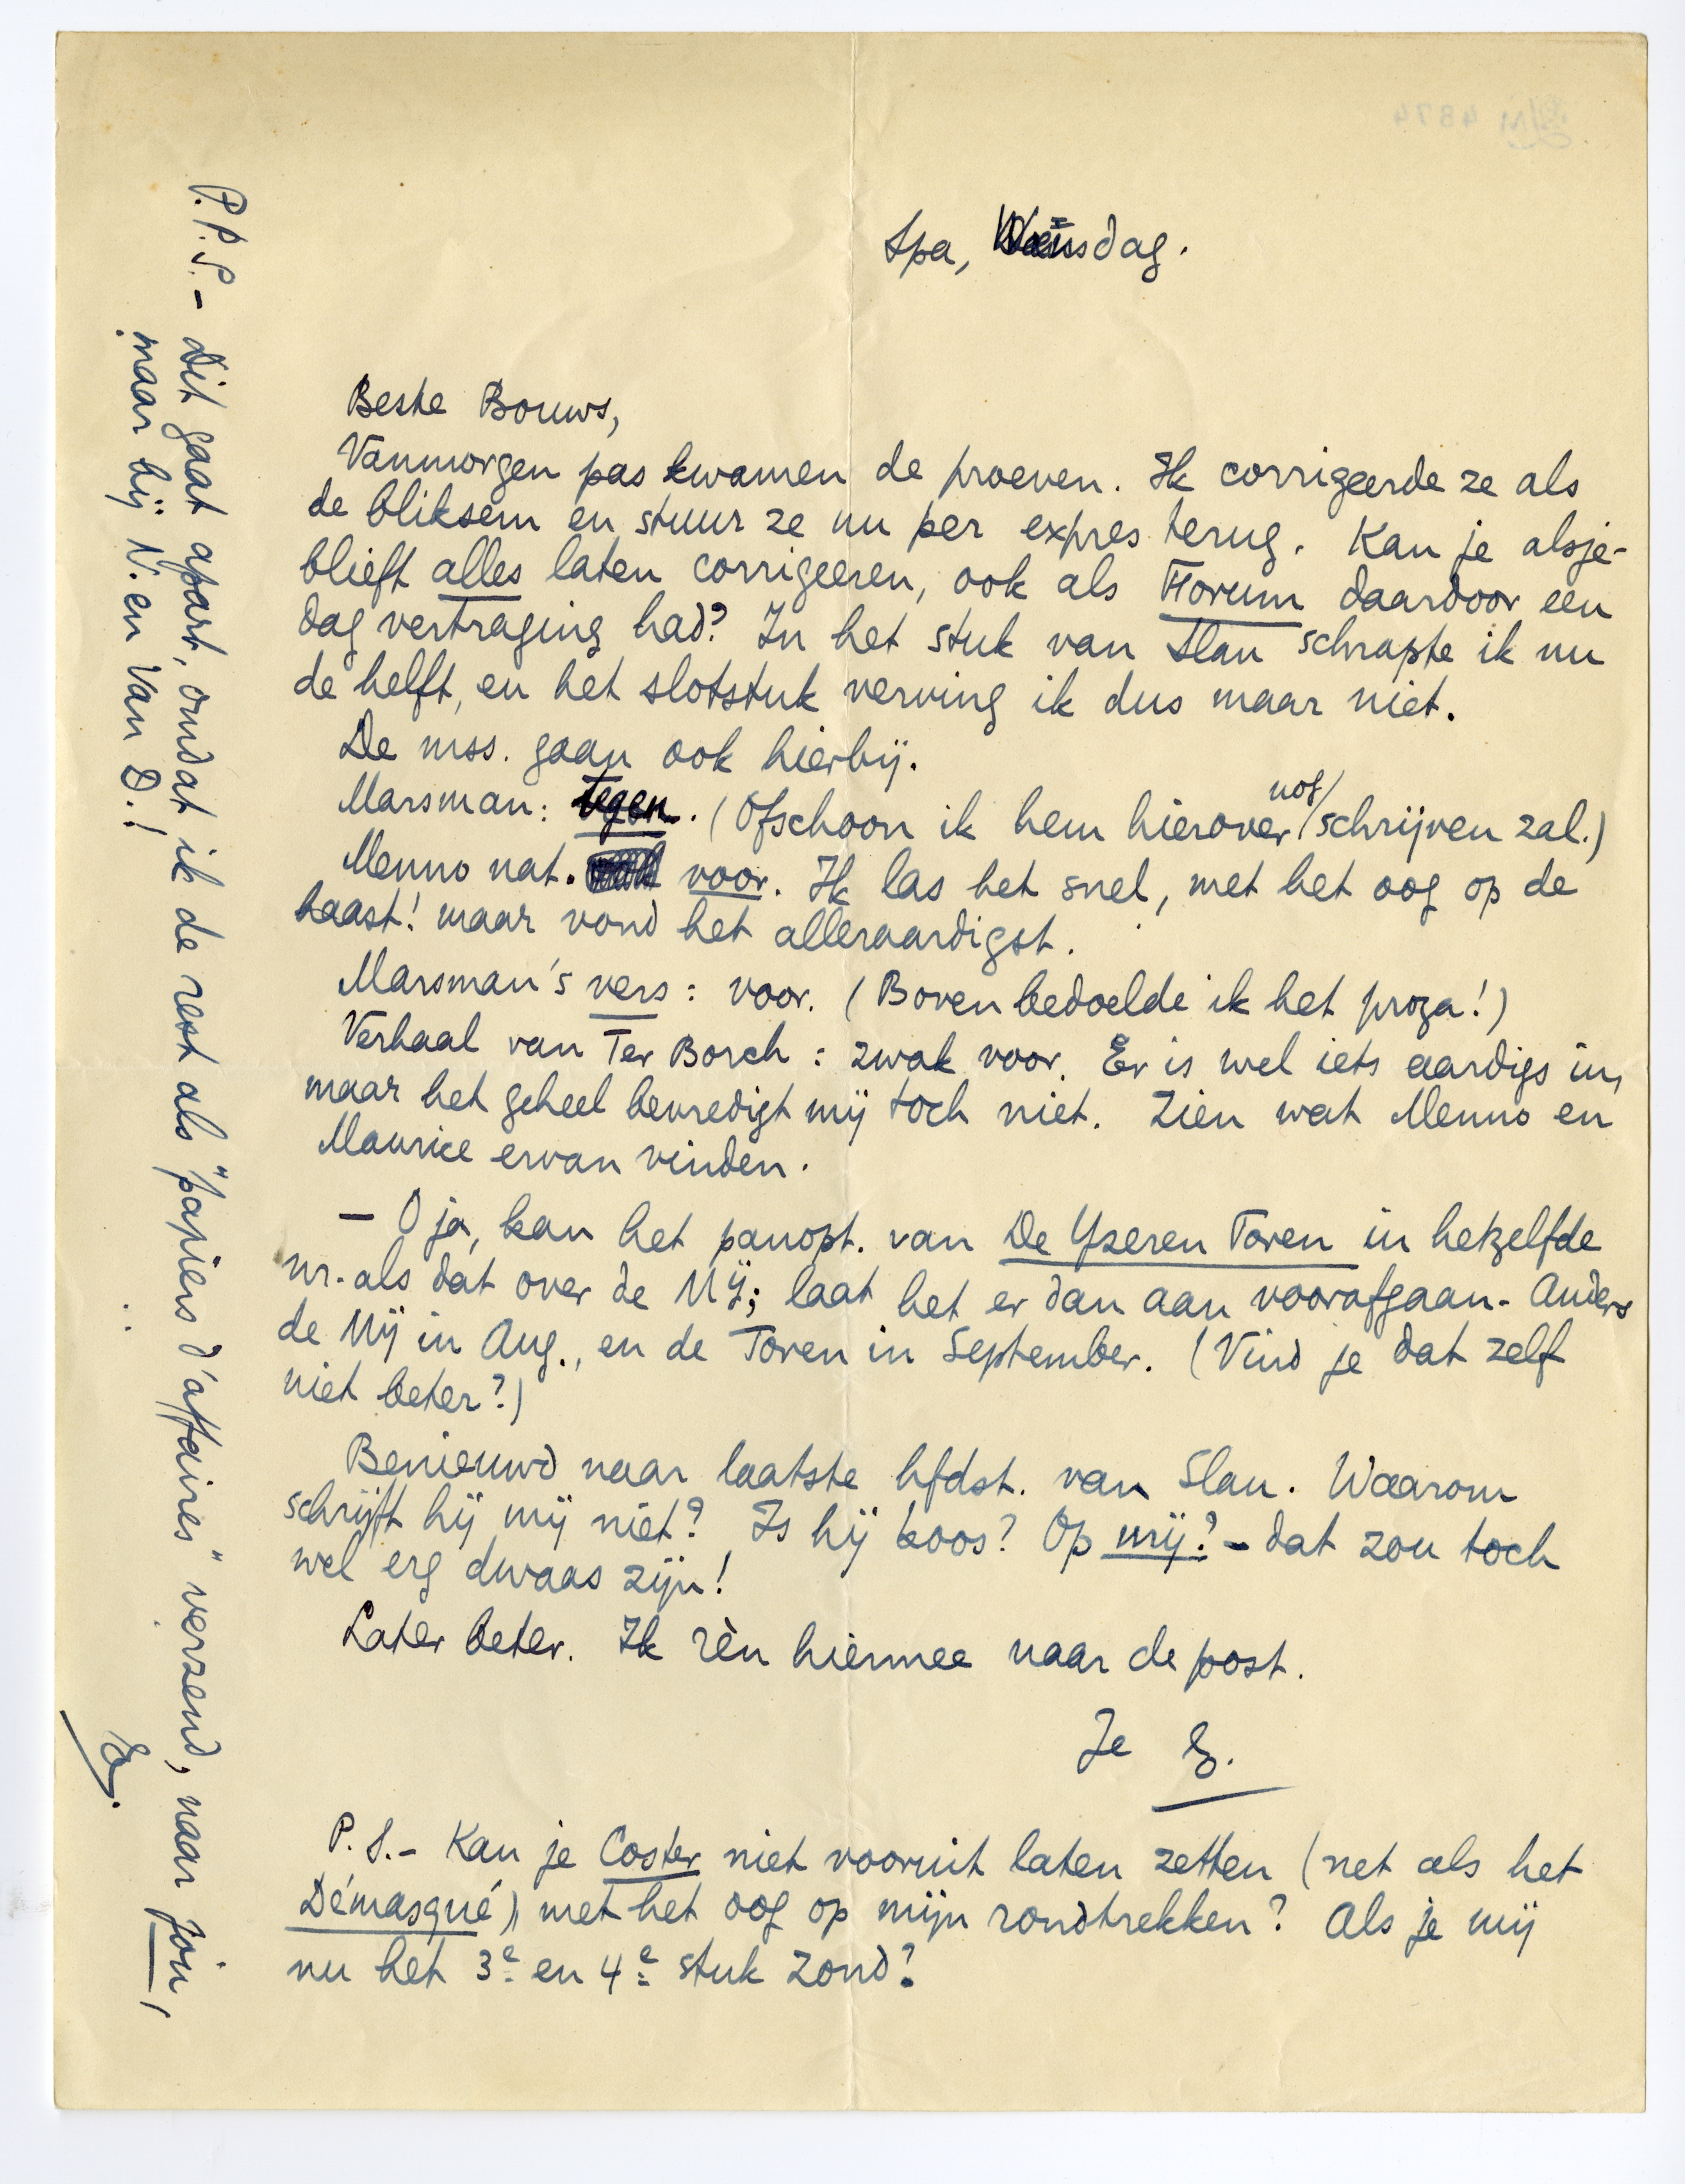 Spa, Woensdag.
Beste Bouws,
Vanmorgen pas kwamen de proeven. Ik corrigeerde ze als
de bliksem en stuur ze nu per expres terug. Kan je alsje-
blieft alles laten corrigeeren, ook als Forum daardoor een
dag vertraging had? In het stuk van Slau schrapte ik nu
de helft, en het slotstuk verving ik dus maar niet.
De mss. gaan ook hierbij.
Marsman: tegen. (Ofschoon ik hem hierover nog schrijven zal.)
Menno nat. voor. Ik las het snel, met het oog op de
haast! maar vond het alleraardigst.
Marsman's vers: voor. (Boven bedoelde ik het proza!)
Verhaal van Ter Borch: zwak voor. Er is wel iets aardigs in,
maar het geheel bevredigt mij toch niet. Zien wat Menno en
Maurice ervan vinden.
— O ja, kan het panopt. van De Yzeren Toren in hetzelfde
nr. als dat over de Mij; laat het er dan aan voorafgaan. Anders
de Mij in Aug., en de Toren in September. (Vind je dat zelf
niet beter?)
Benieuwd naar laatste hfdst. van Slau. Waarom
schrijft hij mij niet? Is hij boos? Op mij? – dat zou toch
wel erg dwaas zijn!
Later beter. Ik rèn hiermee naar de post.
Je E.
P.S. – Kan je Coster niet vooruit laten zetten (net als het
Démasqué), met het oog op mijn rondtrekken? Als je mij
nu het 3e en 4e stuk zond?
P.P.S. – Dit gaat apart, omdat ik de rest als "papiers d'affaires" verzend, naar jou,
maar bij N. en Van D.!
E.